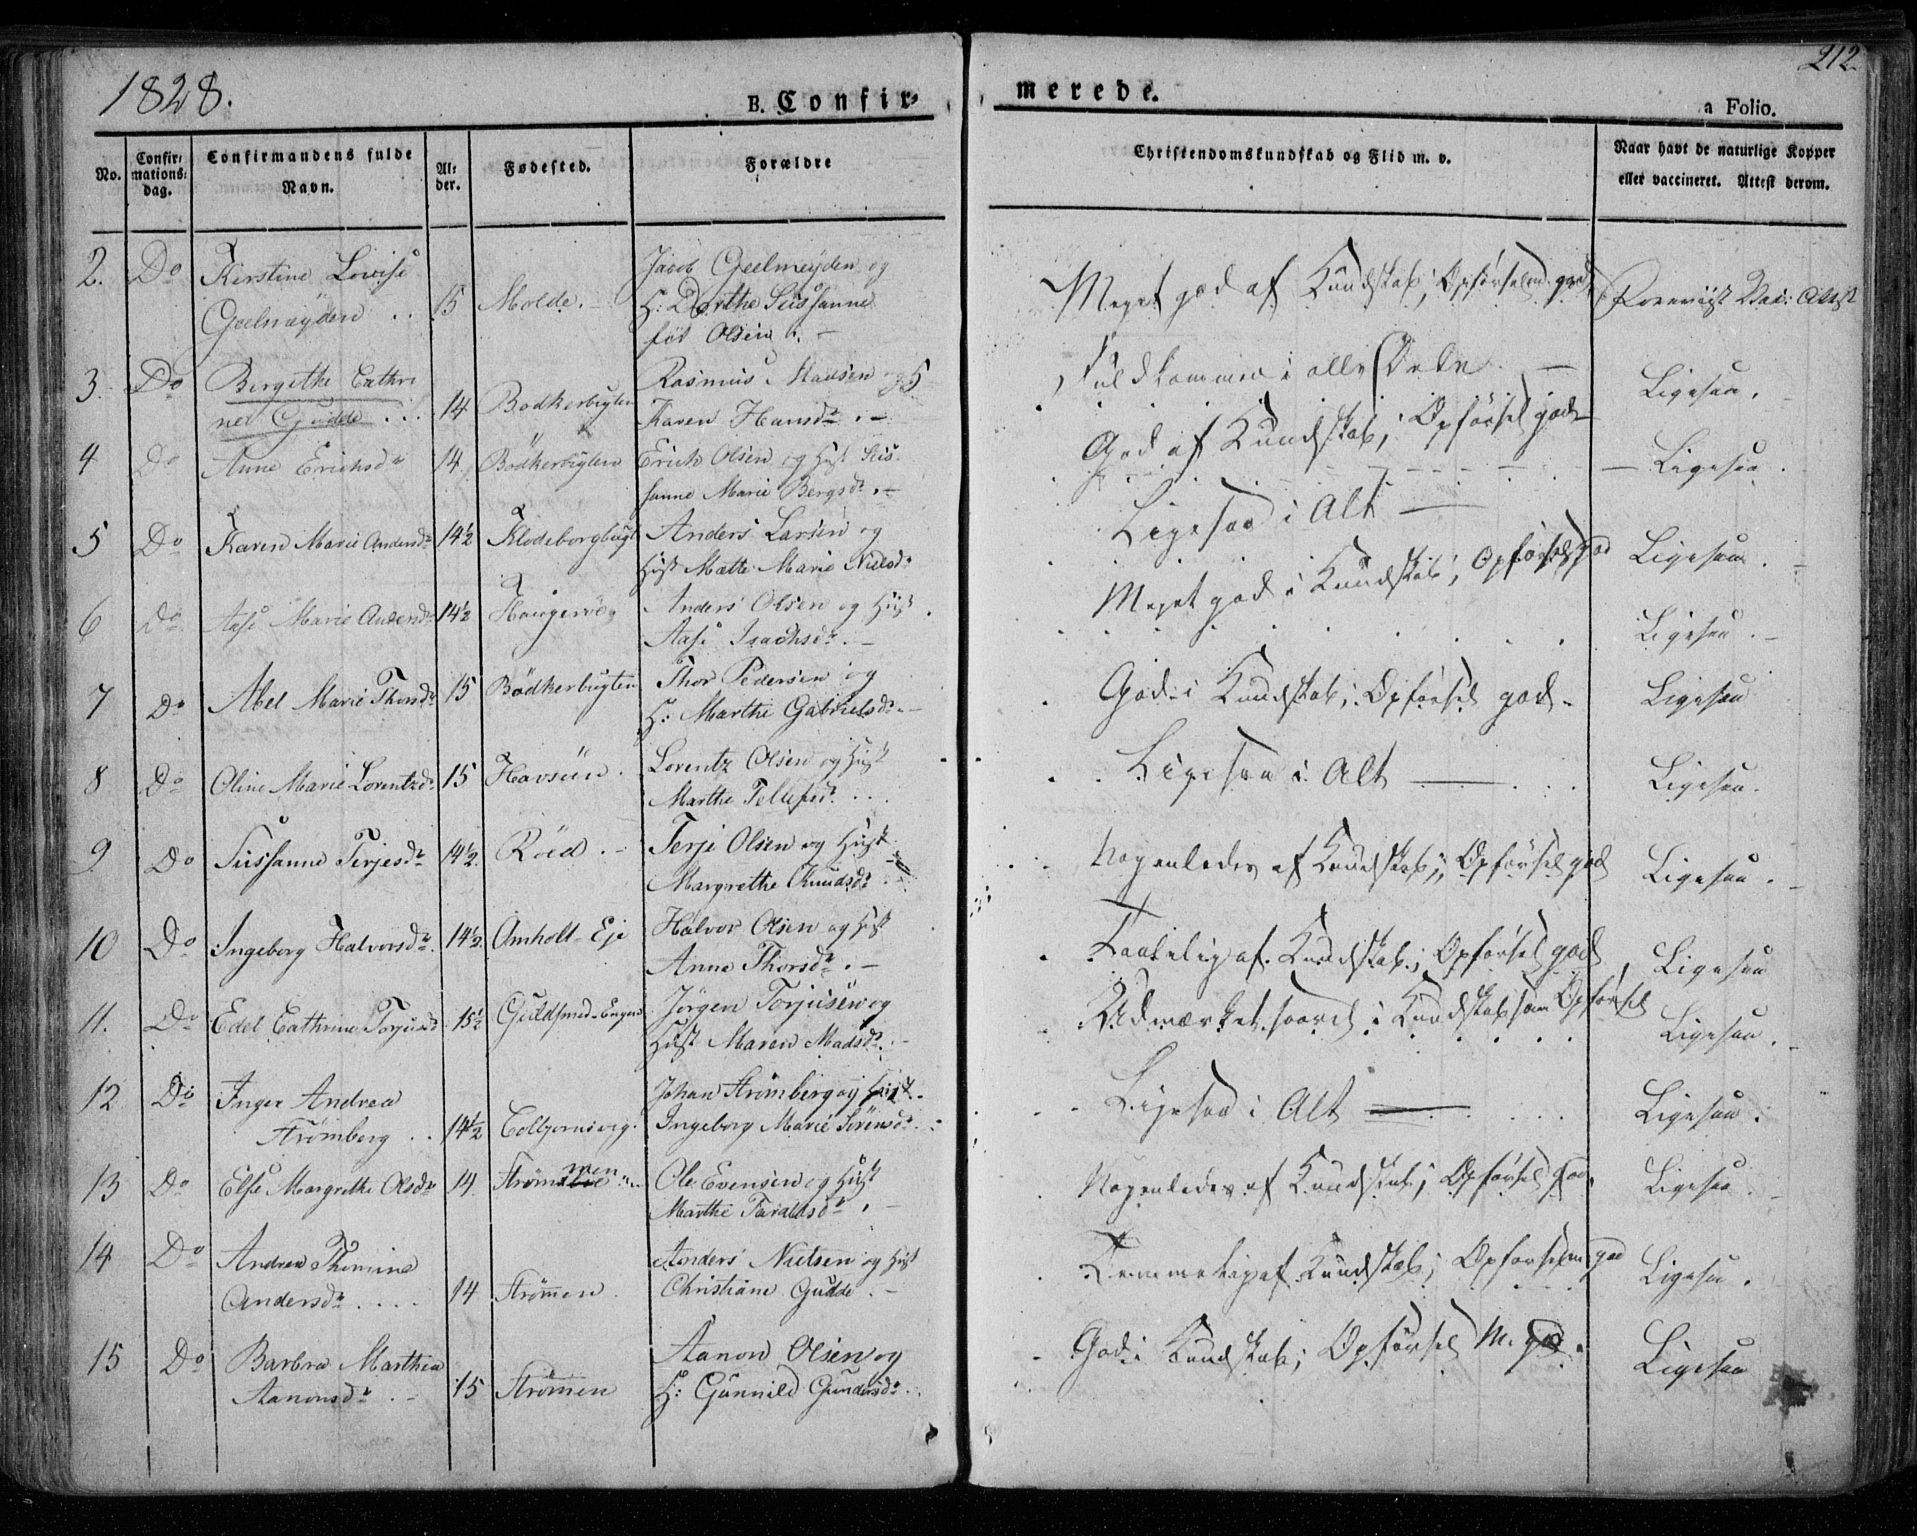 1828.
B. Confir-
merede.
212.
a Folio.
No.
Confir-
mations-
dag.
Confirmandens fulde
Navn.
Al-
der.
Fødested.
Forældre
Christendomskundskab og Flid m. v.
Naar havt de naturlige Kopper
eller vaccineret. Attest derom.
2. Do Kirstine Lovise
Geelmeÿden .. 15 Molde. -
Jacob Geelmeÿden og
H: Dorthe Sussanne
föd Olsen . -
Meget god af Kundskab; Opförselen god
Vac: Attest
3. Do Birgithe Cathri
ne Gudde ... 14 Bödkerbugten
Rasmus Madsen og
Karen Hansdr. -
Fuldkommen i alle Dele. -
Ligesaa.
4 Do Anne Erichsdr 14 Bödkerbugten
Erich Olsen og Hust Sus-
sanne Marie Bergsdr. -
God af Kundskab; Opförsel god
Ligesaa.
5 Do Karen Marie Andersdr 14½ Klodeborgbugt
Anders Larsen og
Hust Mætte Marie Nielsdr
Ligesaa i Alt
Ligesaa. -
6 Do Aase Marie Andersdr 14½
Anders Olsen og Hust.
Aase Isachsdr. -
Meget god i Kundskab; Opförsel god
Ligesaa. -
7 Do Abel Marie Thorsdr 15 Bödkerbugten
Thor Pedersen og
H: Marthe Gabrielsdr. -
God i Kundskab; Opförsel god.
Ligesaa
8 Do Oline Marie Lorentzdr 15 Havsöen.
Lorentz Olsen og Hust
Marthe Tellefsdr. ..
Ligesaa i Alt
Ligesaa.
9 Do Sussanne Terjesdr 14½ Röed. -
Terje Olsen og Hust
Margrethe Knudsdr.
Nogenledes af Kundskab; Opförsel god
Ligesaa. -
10 Do Ingeborg Halvorsdr 14½ Amholt-Eje
Halvor Olsen og Hust
Anne Thorsdr. -
Taalelig af Kundskab; Opförsel god
Ligesaa
11. Do Edel Cathrine Torjusdr 15½ Guldsmed-Engene
Jörgen Torjusen og
Hust Maren Madsdr. -
Udmærket saavel i Kundskab som Opförsel
Ligesaa. -
12 Do Inger Andrea
Strömberg .. 14½ Colbjørnsvig.
Johan Strömberg og Hust.
Ingeborg Marie Sörensdr. ..
Ligesaa i Alt
Ligesaa.
13 Do Else Margrethe Olsdr 14 Strömmen
Ole Evensen og Hust
Marthe Taraldsdr. -
Nogenledes af Kundskab; Opförsel god.
Ligesaa. -
14 Do Andrea Thomine
Andersdr .... 14 Strømmen.
Anders Nielsen og Hust
Christiane Gudde. -
Temmelig af Kundskab; Opförselen god
Ligesaa.
15 Do Barbra Marthea
Aanonsdr. - 15 Strømmen
Aanon Olsen og
H: Gunnild Gundersdr.
God i Kundskab; Opförsel M. god.
Ligesaa